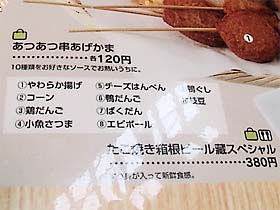 ①
あつあつ串あげかま
各120円
10種類をお好きなソースでお熱いうちに。
①やわらか揚げ ⑤チーズはんぺん 鴨ぐし
②コーン ⑥鴨だんご 枝豆
③鶏だんご ⑦ばくだん
④小魚さつま ⑧エビボール
たこ焼き箱根ビール蔵スペシャル
380円
が入って新鮮食感。